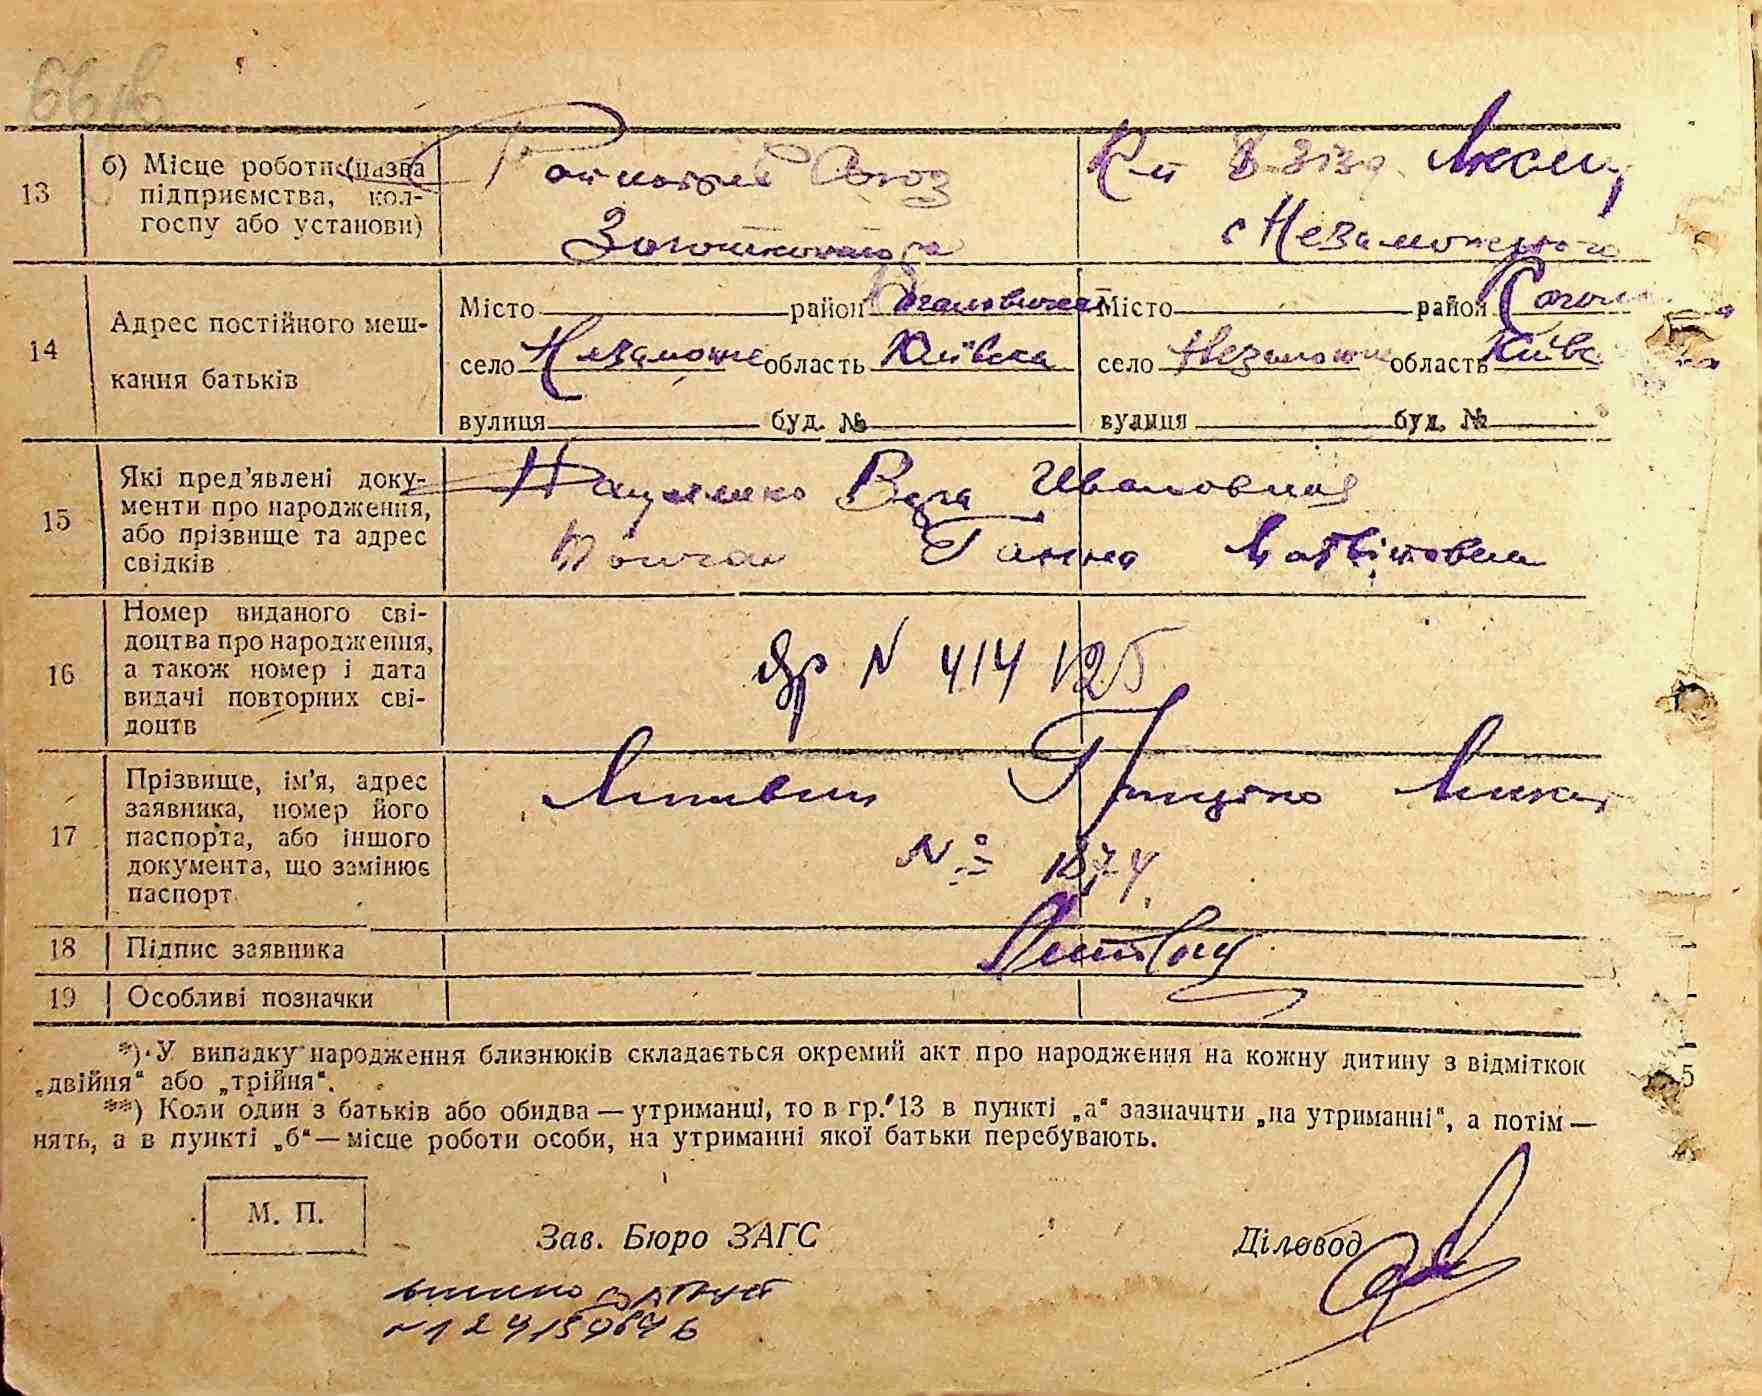 13
б) Місце роботи (назва
підприємства, кол-
госпу або установи)
Союз
с Незаможного
14
Адрес постійного меш-
кання батьків
Місто район Місто район
село Незаможне область Київська село Незаможне область Київс
вулиця буд. № вулиця буд. №
15
Які пред’явлені доку-
менти про народження,
або прізвище та адрес
свідків
Науменко Вера Ивановная
Ганна Матвіїовна
16
Номер виданого сві-
доцтва про народження,
а також номер і дата
видачі повторних сві-
доцтв
N 414125
17
Прізвище, ім’я, адрес
заявника, номер його
паспорта, або іншого
документа, що замінює
паспорт
Литвин Грицько
№ 1874
18
Підпис заявника
Литвин
19
Особливі позначки
*) У випадку народження близнюків складається окремий акт про народження на кожну дитину з відміткою
„двійня“ або „трійня“.
**) Коли один з батьків або обидва — утриманці, то в гр. 13 в пункті „а“ зазначити „на утриманні“, а потім —
нять, а в пункті „б“ — місце роботи особи, на утриманні якої батьки перебувають.
М. П.
Зав. Бюро ЗАГС
Діловод